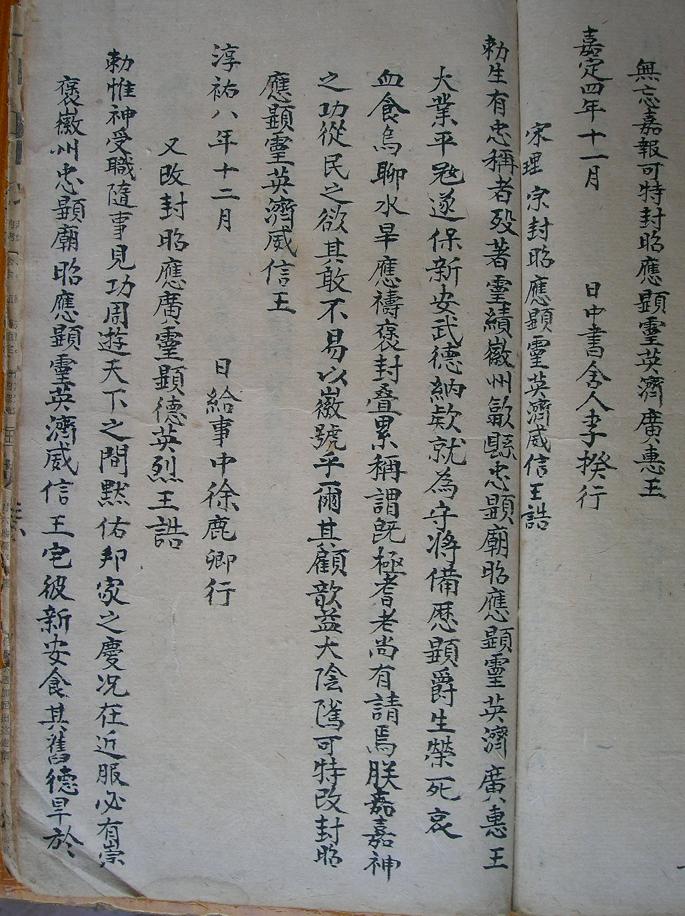 無忘嘉報可特封昭應顯霊英濟廣惠王
嘉定四年十一月 日中書舍人李揆行
宋理宗封昭應顯霊英濟威信王誥
勅生有忠稱者殁著霊績徽州歙縣忠顯廟昭應顯霊英濟廣惠王
大業平寇遂保新安武德納欵就為守將備歷顯爵生榮死哀
血食烏聊水旱應禱褒封叠累稱謂旣極耆老尚有請焉朕嘉嘉神
之功從民之欲其敢不易以徽號乎爾其顧歆益大陰隲可特改封昭
應顯霊英濟威信王
淳祐八年十二月 日給事中徐鹿卿行
又改封昭應廣霊顯德英烈王誥
勅惟神受職隨事見功周遊天下之間黙佑邦家之慶况在近服必有崇
褒徽州忠顯廟昭應顯霊英濟威信王宅彼新安食其舊德旱於